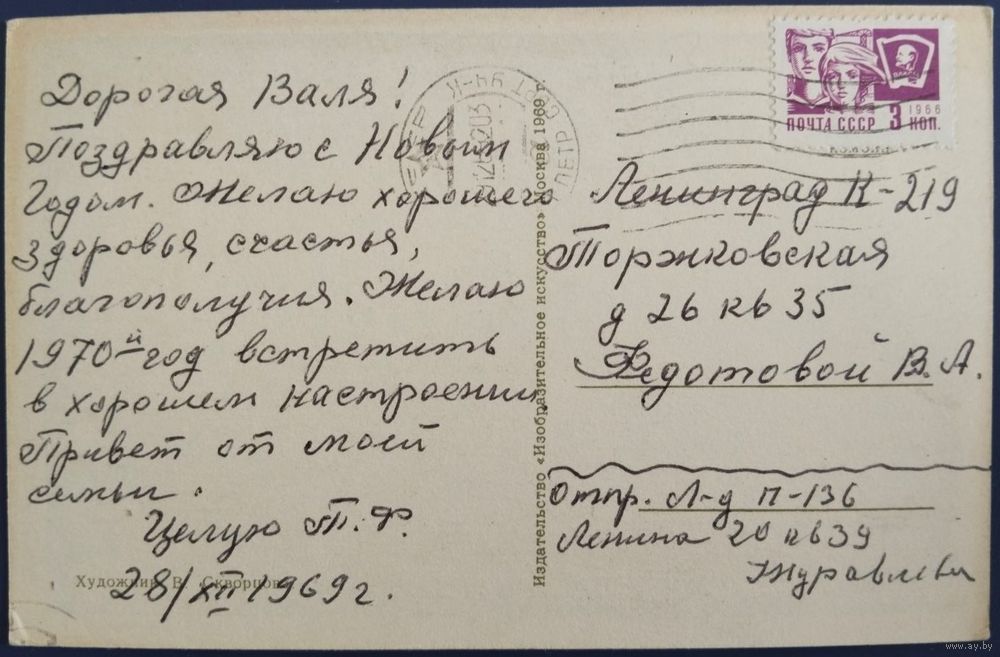 Дорогая Валя!
Поздравляю с Новым
Годом. Желаю хорошего
здоровья, счастья,
благополучия. Желаю
1970й год встретить
в хорошем настроении
Привет от моей
семьи.
Целую Т.Ф.
28/XII 1969 г.
Художник В. Скворцов
Издательство «Изобразительное искусство» Москва 1969 г.
ПОЧТА СССР 3 КОП.
1966
Ленинград К-219
Торжковская
д 26 кв 35
Федотовой В.А.
Отпр. Л-д П-136
Ленина 20 кв 39
Журавлева
www.ay.by